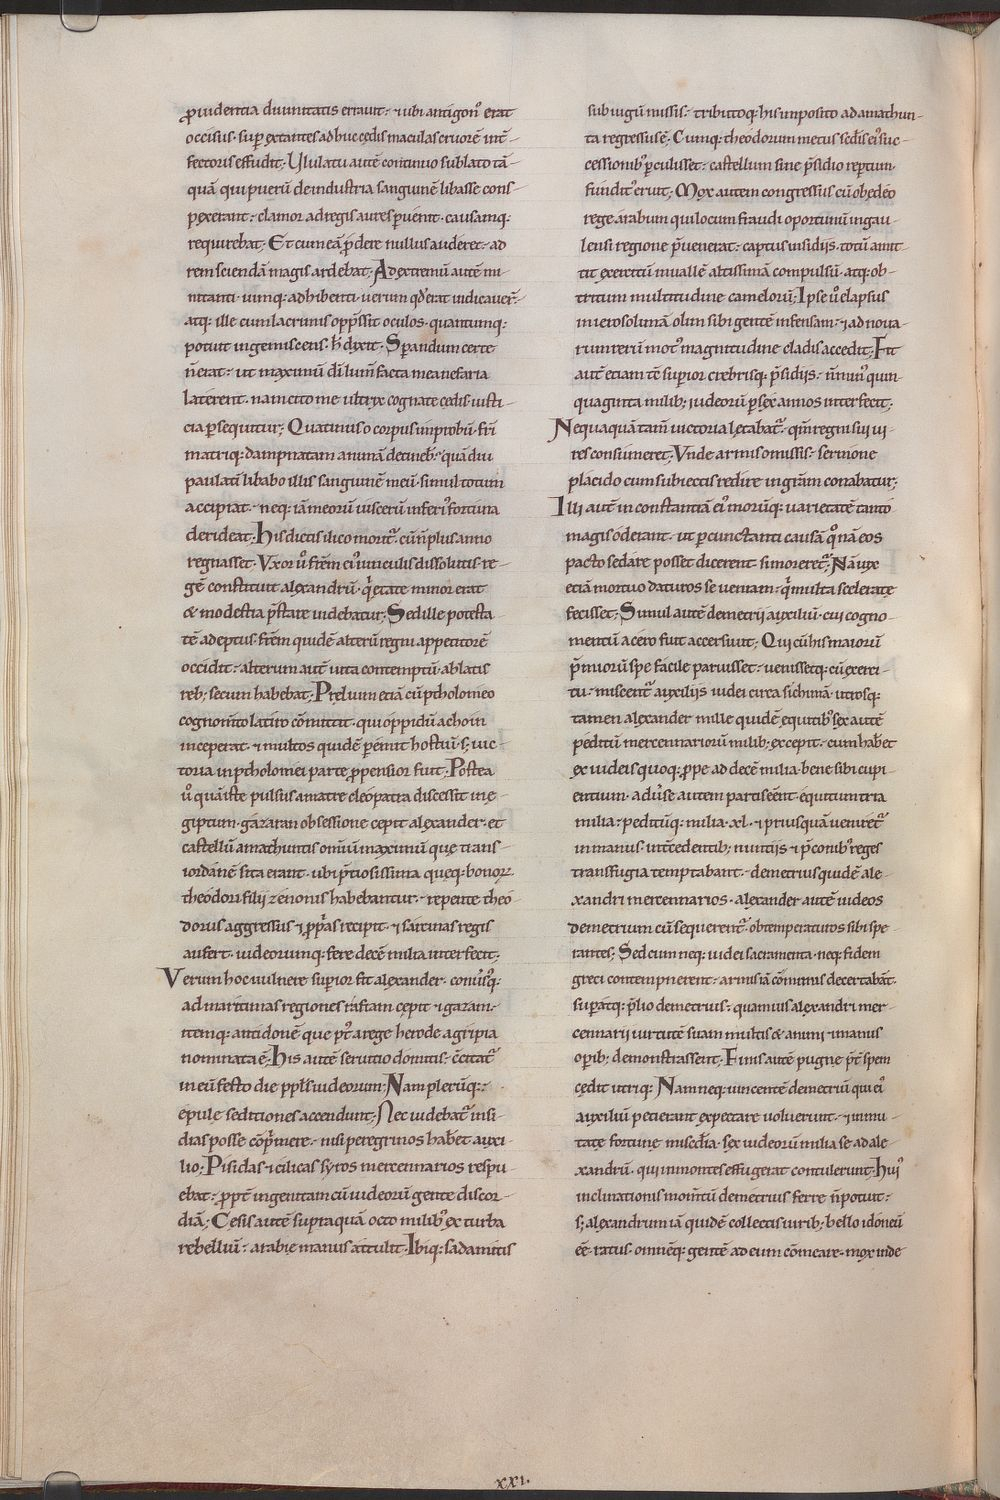 ꝓuidentia diuinitatis errauit· ⁊ ubi antigon᷒ erat
occisus· sup̄ extantes adhuc cędis maculas cruorē int̄-
fectoris effudit; Vlulatu autē continuo sublato tā-
quā qui puerū de industria sanguinē libasse cons-
pexerant· clamor ad regis aures ꝑuenit· causamq;
requirebat; Et cum eā ꝓdere nullus auderet· ad
rem sciendā magis ardebat; Ad extremū autē mi-
nitanti· uimq; adhibenti· uerum qd̄ erat indicauer̄·
atq; ille cum lacrimis opp̄ssit oculos· quantumq;
potuit ingemiscens· h̄ dixit; Sperandum certe
n̄ erat· ut maximū dī lum̄ facta mea nefaria
laterent· nam cito me ultrix cognatę cędis iusti-
cia ꝑsequitur; Quatinus o corpus improbū· frī
matriq; dampnatam animā detineb᷒· quā diu
paulatī libabo illis sanguinē meū· simul totum
accipiat· neq; iā meorū uiscerū inferi᷒ fortuna
derideat; His dictis ilico morit᷑· cū n̄ plus anno
regnasset· Vxor u̓ frēm ei᷒ uinculis dissolutis re-
gē constituit alexandrū· qͥ ętate minor erat
& modestia p̄stare uidebatur; Sed ille potesta
tē adeptus· frēm quidē alterū regni appetitorē
occidit· alterum autē uita contemptū ablatis
reb; secum habebat; Prelium etiā cū ptholomeo
cognom̄to latiro cōmittit· qui oppidū achoin
inceperat· ⁊ multos quidē ꝑemit hostiū· s; uic-
toria in ptholomei parte ꝓpensior fuit; Postea
u̓ quā iste pulsus a matre cleopatra discessit in ę-
giptum· gazaran obsessione cepit alexander· et
castellū amathuntis omīū maximū quę trans-
iordanē sita erant· ubi p̄ciosissima quęq; bonoꝝ
theodori filii zenonis habebantur· repente theo-
dorus aggressus ⁊ ꝓp̄as recipit· ⁊ sarcinas regis
aufert· iudeorumq; fere decē milia interfecit;
Verum hoc uulnere sup̄ior fit alexander· conu̓s᷒q;
ad maritimas regiones rafiam cępit ⁊ gazam·
itemq; antidonē que p᷒t a rege herode agrippa
nominata ē; His autē seruitio domitis· c̄citat᷑
in eū festo die ppl̄s iudeorum; Nam plerūq;
epulę seditiones accendunt; Nec uidebat᷑ insi-
dias posse cōp̄mere· nisi peregrinos hab̄et auxi-
lio; Pisidas ⁊ cilicas syros mercennarios respu-
ebat· ꝓpt᷒ ingenitam cū iudeorū gente discor-
diā; Cesis autē supraquā octo milib᷒ ex turba
rebelliū· arabię manus attulit· Ibiq; sadamitis
sub iugū missis· tributoq; his imposito ad amathun-
ta regressus ē; Cumq; theodorum metus sed eī suc-
cessionib᷒ ꝑculisset· castellum sine p̄sidio reptum·
fundit᷒ eruit; Mox autem congressus cū obedeo
rege arabum qui locum fraudi oportunū in gau-
lensi regione p̄uenerat· captus insidiis· totū amit-
tit exercitū in uallē altissimā compulsū· atq; ob-
tritum multitudine camelorū; Ipse u̓ elapsus
in ierosolimā· olim sibi gentē infensam· ⁊ ad noua-
rum rerū mot᷒ magnitudine cladis accedit; Fit
autē etiam tē sup̄ior crebrisq; p̄sidiis· n̄ min᷒ quin-
quaginta milib; iudeorū ꝑ sex annos interfecit;
Nequaquā tam̄ uictoria lętabat᷑· qm̄ regni sui ui-
res consumeret; Vnde armis omissis· sermone
placido cum subiectis redire in gr̄am conabatur;
Illi autē inconstantiā ei᷒ morūq; uarietatē tanto
magis oderant· ut ꝑcunctanti causā qͦnā eos
pacto sedare posset dicerent si moreret᷑; Nā uix
etiā mortuo daturos se ueniam· qͥ multa scelerate
fecisset; Simul autē demetrii auxiliū· cui cogno-
mentū acero fuit accersiuit; Qui cū his maiorū
p̄miorū spe facile paruisset· uenissetq; cū exerci-
tu· miscent᷑ auxiliis iudei circa sichimā· utrosq;
tamen alexander mille quidē equitib᷒ sex autē
peditū mercennariorū milib; excepit· cum hab̄et
ex iudeis quoq; ꝓpe ad decē milia· bene sibi cupi-
entium· adu̓se autem partis eēnt· equitum tria
milia· peditūq; milia· xl· ⁊ priusquā ueniret᷑
in manus· int̄cedentib; nuntiis ⁊ p̄conib᷒ reges
transfugia temptabant· demetrius quidē ale-
xandri mercennarios· alexander autē iudeos
demetrium cū sequerent᷑· obtemperaturos sibi spe-
rantes; Sed cum neq; iudei sacramenta· neq; fidem
greci contempnerent· armis iā cōminus decertabāt·
sup̄atq; p̄lio demetrius· quamuis alexandri mer-
cennarii uirtutē suam multis & animi ⁊ manus
op̄ib; demonstrassent; Finis autē pugnę p̄t spem
cędit utriq; Nam neq; uincentē demetriū qui ei᷒
auxiliū petierant expectare uoluerunt· ⁊ inmu-
tatę fortunę misc̄dia· sex iudeorū milia se ad ale-
xandrū· qui in montes effugerat contulerunt; Hui᷒
inclinationis mom̄tū demetrius ferre n̄ potuit·
s; alexandrum iā quidē collectis uirib; bello idoneū
eē· ratus· omnēq; gentē ad eum cōmeare· mox inde
xxi.